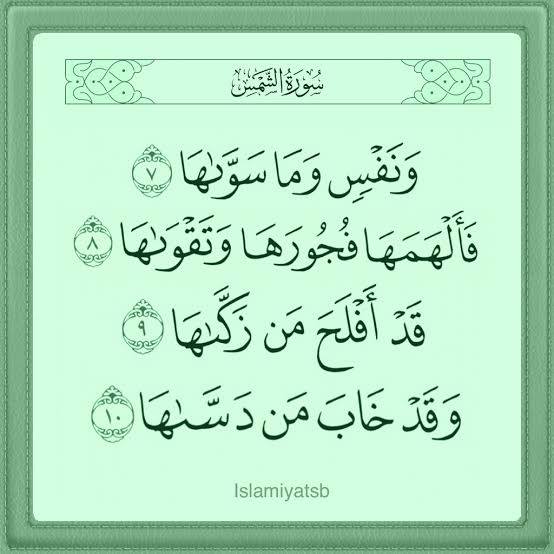 سُورَةُ الشَّمْسِ
وَنَفْسٍ وَمَا سَوَّىٰهَا ٧
فَأَلْهَمَهَا فُجُورَهَا وَتَقْوَىٰهَا ٨
قَدْ أَفْلَحَ مَن زَكَّىٰهَا ٩
وَقَدْ خَابَ مَن دَسَّىٰهَا ١٠
Islamiyatsb